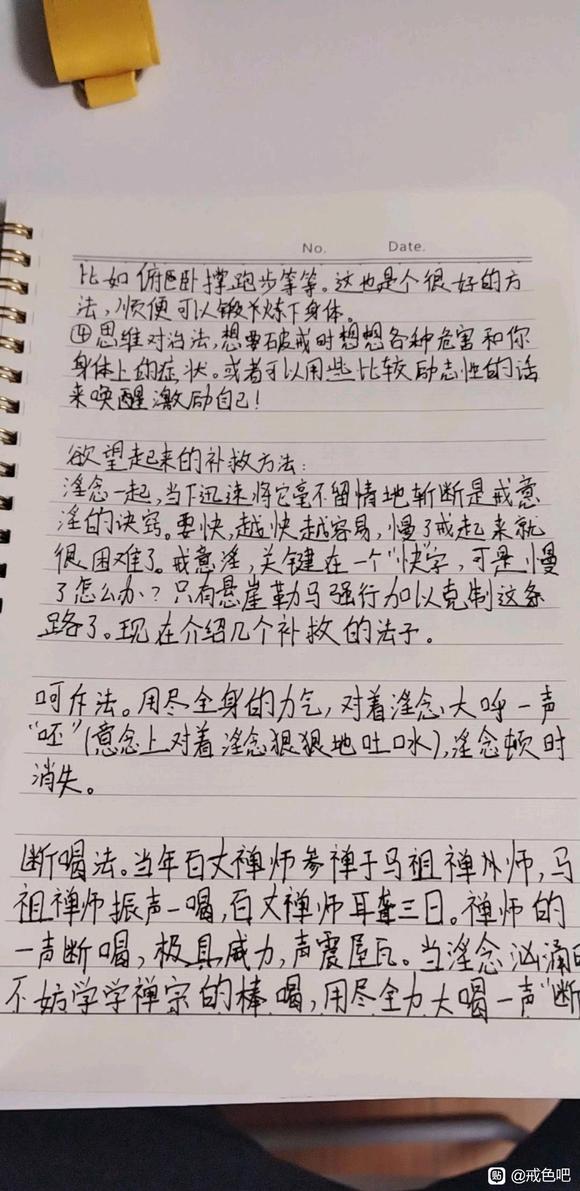 No. Date.
比如俯卧撑跑步等等。这也是个很好的方
法,顺便可以锻炼下身体。
④思维对治法,想要破戒时想想各种危害和你
身体上的症状。或者可以用些比较励志性的话
来唤醒激励自己!
欲望起来的补救方法:
淫念一起,当下迅速将它毫不留情地斩断是戒意
淫的诀窍。要快,越快越容易,慢了戒起来就
很困难了。戒意淫,关键在一个“快”字,可是慢
了怎么办?只有悬崖勒马强行加以克制这条
路了。现在介绍几个补救的法子。
呵斥法。用尽全身的力气,对着淫念大呼一声
“呸”(意念上对着淫念狠狠地吐口水),淫念顿时
消失。
断喝法。当年百丈禅师参禅于马祖禅师,马
祖禅师振声一喝,百丈禅师耳聋三日。禅师的
一声断喝,极具威力,声震屋瓦。当淫念汹涌
不妨学学禅宗的棒喝,用尽全力大喝一声“断
@戒色吧